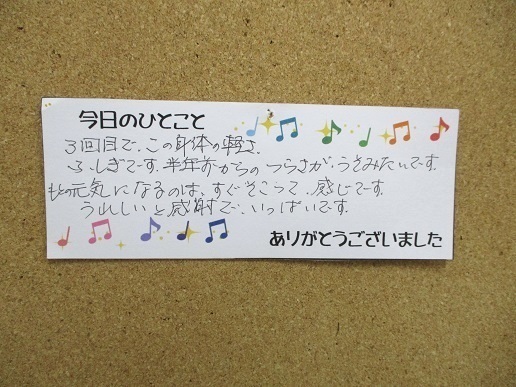 今日のひとこと
3回目で、この身体の軽さ。
ふしぎです。半年前からのつらさが、うそみたいです。
もとの元気になるのは、すぐそこって、感じです。
うれしいと感射で、いっぱいです。
ありがとうございました